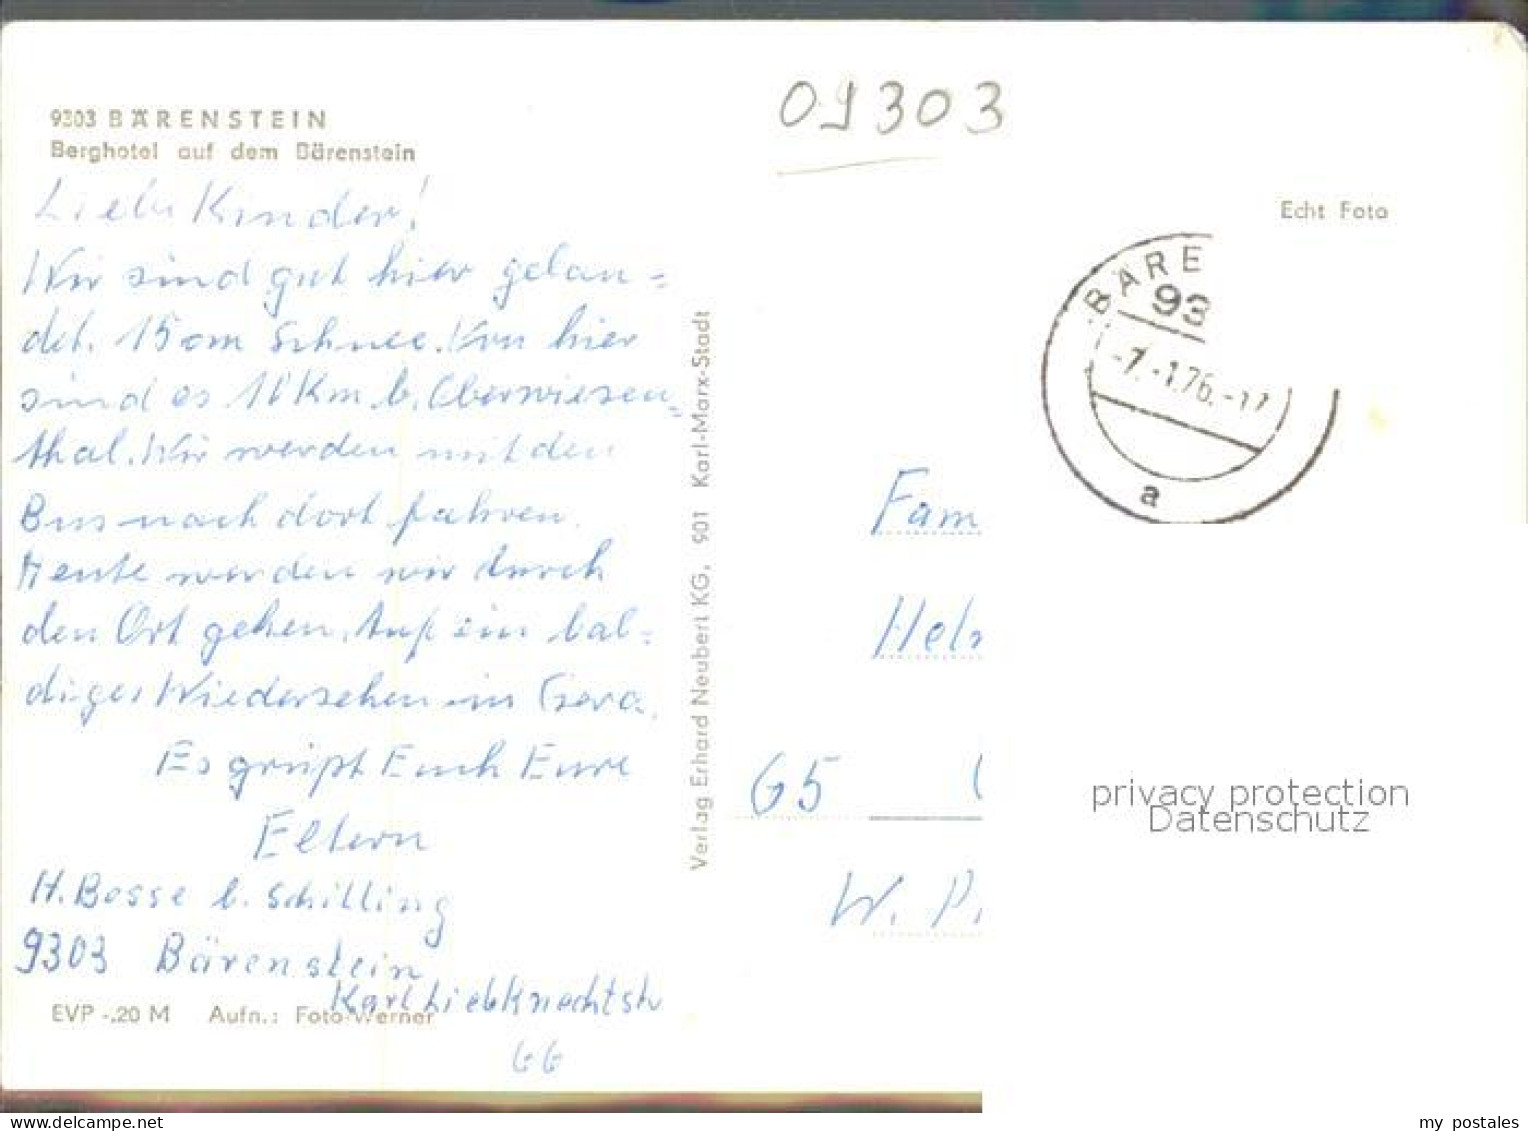 09303
9303 BÄRENSTEIN
Berghotel auf dem Bärenstein
Echt Foto
Liebe Kinder!
Wir sind gut hier gelan=
det. 15 cm Schnee. Von hier
sind es Km b. Oberwiesen=
thal. Wir werden mit den
Bus nach dort fahren.
Heute werden wir durch
den Ort gehen. Auf ein bal=
diges Wiedersehen in Gera.
Es grüßt Euch Eure
Eltern
H. Bosse b. Schilling
9303 Bärenstein
Karl Liebknechtstr
66
EVP -.20 M Aufn.: Foto-Werner
Verlag Erhard Neubert KG, 901 Karl-Marx-Stadt
BÄRE
93
-7.-1.76.-17
a
Fam
Helm
65
W. P.
privacy protection
Datenschutz
www.delcampe.net
my_postales